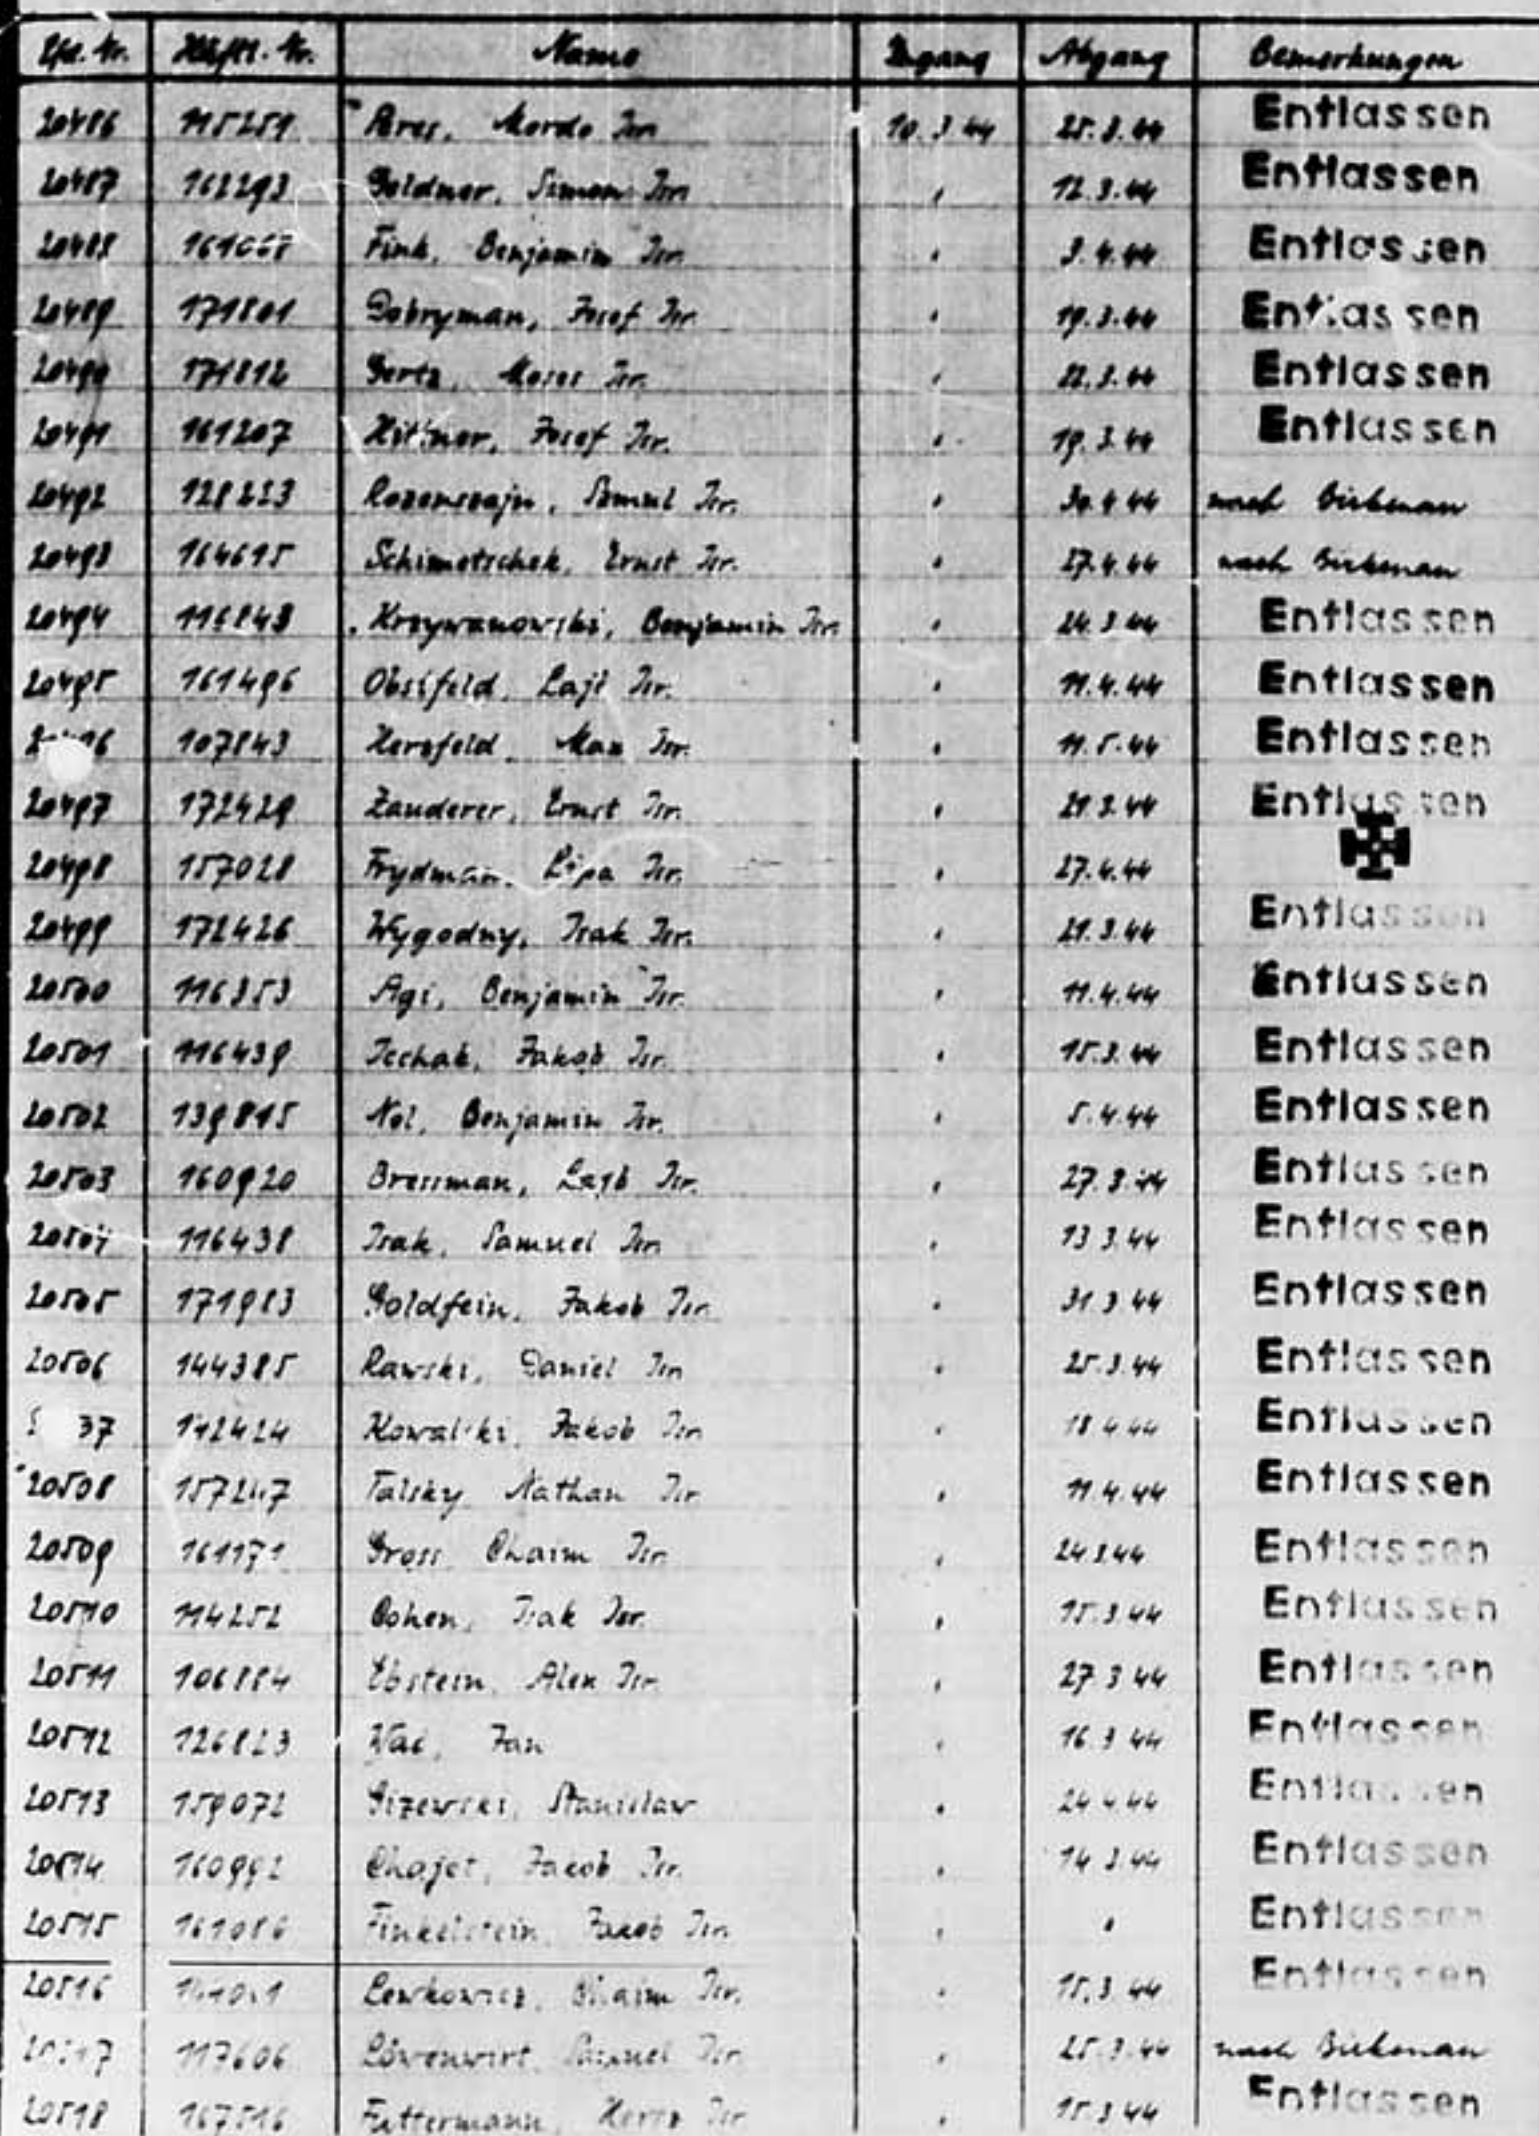 Lfd. Nr. Häftl. Nr. Name Zugang Abgang Bemerkungen
20486 115251 Peres, Mordo Isr. 10.3.44 25.3.44 Entlassen
20487 162293 Goldner, Simon Isr. " 12.3.44 Entlassen
20488 Fink, Benjamin Isr. " 3.4.44 Entlassen
20489 171801 Dobryman, Josef Isr. " 19.3.44 Entlassen
20490 171812 Gertz, Moses Isr. " 22.3.44 Entlassen
20491 161207 Hittner, Josef Isr. " 19.3.44 Entlassen
20492 128223 Rozenszajn, Szmul Isr. " 30.4.44 nach Birkenau
20493 164615 Schimetschek, Ernst Isr. " 27.4.44 nach Birkenau
20494 116848 Krzywanowski, Benjamin Isr. " 24.3.44 Entlassen
20495 161496 Obstfeld, Lajb Isr. " 11.4.44 Entlassen
107843 Herzfeld, Max Isr. " 11.5.44 Entlassen
20497 172429 Zauderer, Ernst Isr. " 21.3.44 Entlassen
20498 157028 Frydman, Lipa Isr. " 27.4.44
20499 172426 Wygodny, Isak Isr. " 21.3.44 Entlassen
20500 116353 Agi, Benjamin Isr. " 11.4.44 Entlassen
20501 116439 Jechak, Jakob Isr. " 15.3.44 Entlassen
20502 139815 Nol, Benjamin Isr. " 5.4.44 Entlassen
20503 160920 Bressman, Lajb Isr. " 27.3.44 Entlassen
20504 116438 Isak, Samuel Isr. " 13.3.44 Entlassen
20505 171983 Goldfein, Jakob Isr. " 31.3.44 Entlassen
20506 144385 Rawski, Daniel Isr. " 25.3.44 Entlassen
142424 Kowalski, Jakob Isr. " 18.4.44 Entlassen
20508 Falsky Nathan Isr. " 11.4.44 Entlassen
20509 161171 Gross, Chaim Isr. " 24.3.44 Entlassen
20510 114252 Cohen, Isak Isr. " 15.3.44 Entlassen
20511 106884 Ebstein, Alex Isr. " 27.3.44 Entlassen
20512 126823 Wac, Jan " 16.3.44 Entlassen
20513 159072 Gizewski, Stanislaw " 24.4.44 Entlassen
20514 160992 Chajet, Jacob Isr. " 14.3.44 Entlassen
20515 161086 Finkelstein, Jakob Isr. " " Entlassen
20516 Lewkowicz, Chaim Isr. " 15.3.44 Entlassen
117606 Löwenwirt, Samuel Isr. " 25.3.44 nach Birkenau
20518 167516 Futtermann, Hersz Isr. " 15.3.44 Entlassen